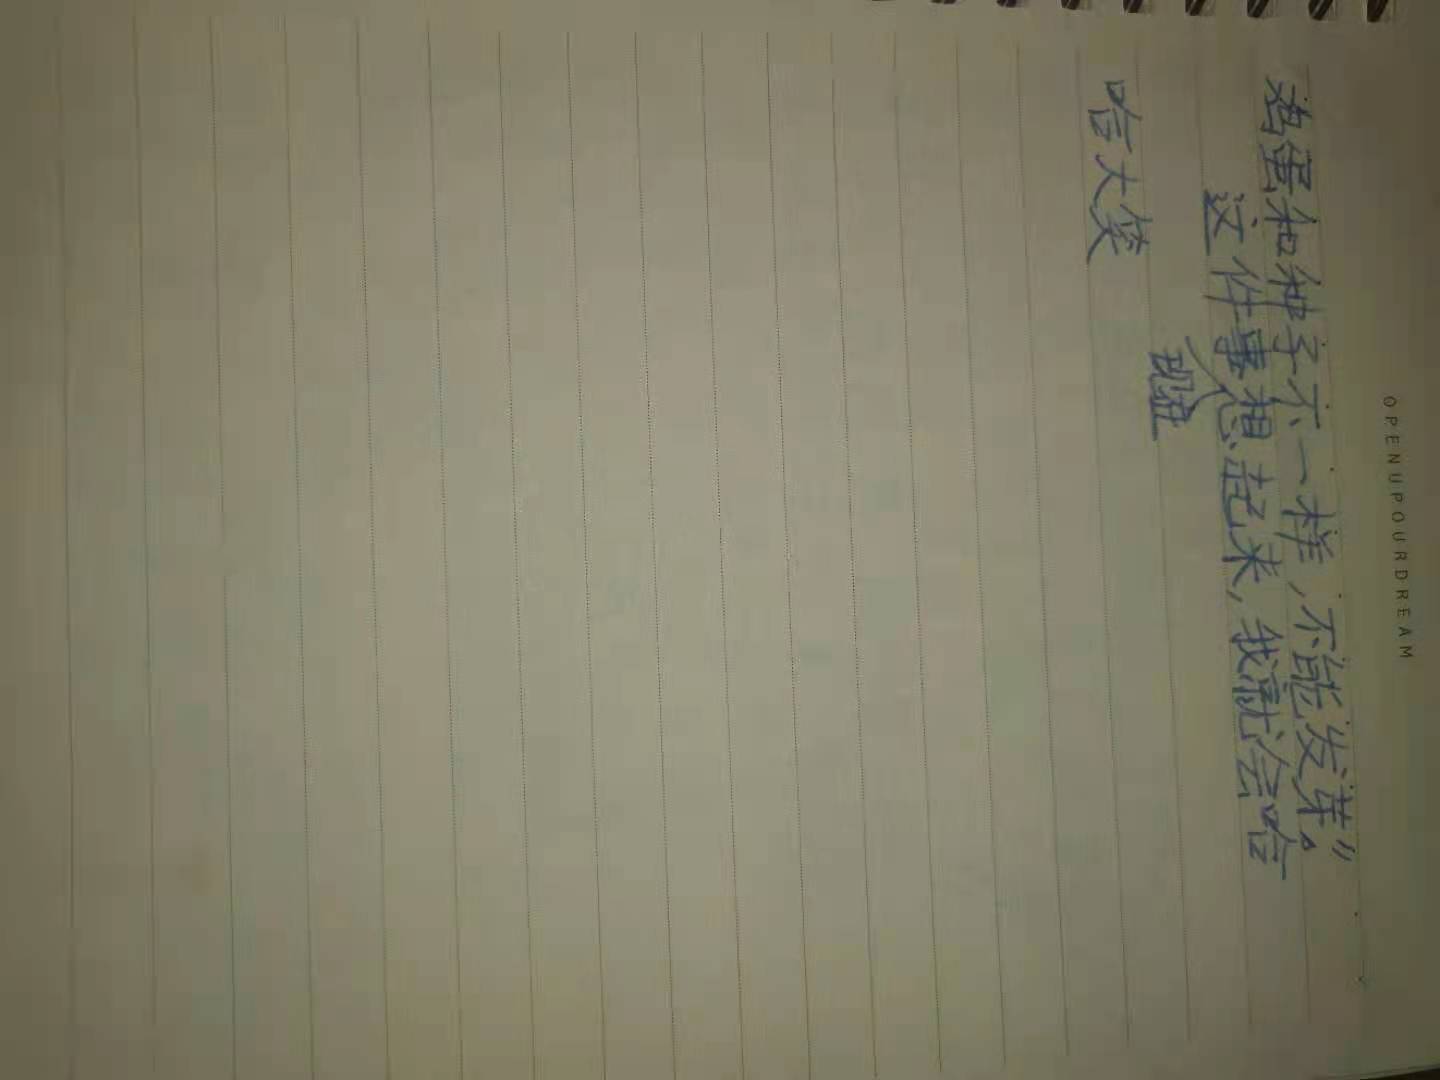 OPENUPOURDREAM
鸡蛋和种子不一样,不能发芽。”
这件事现在想起来,我就会哈
哈大笑